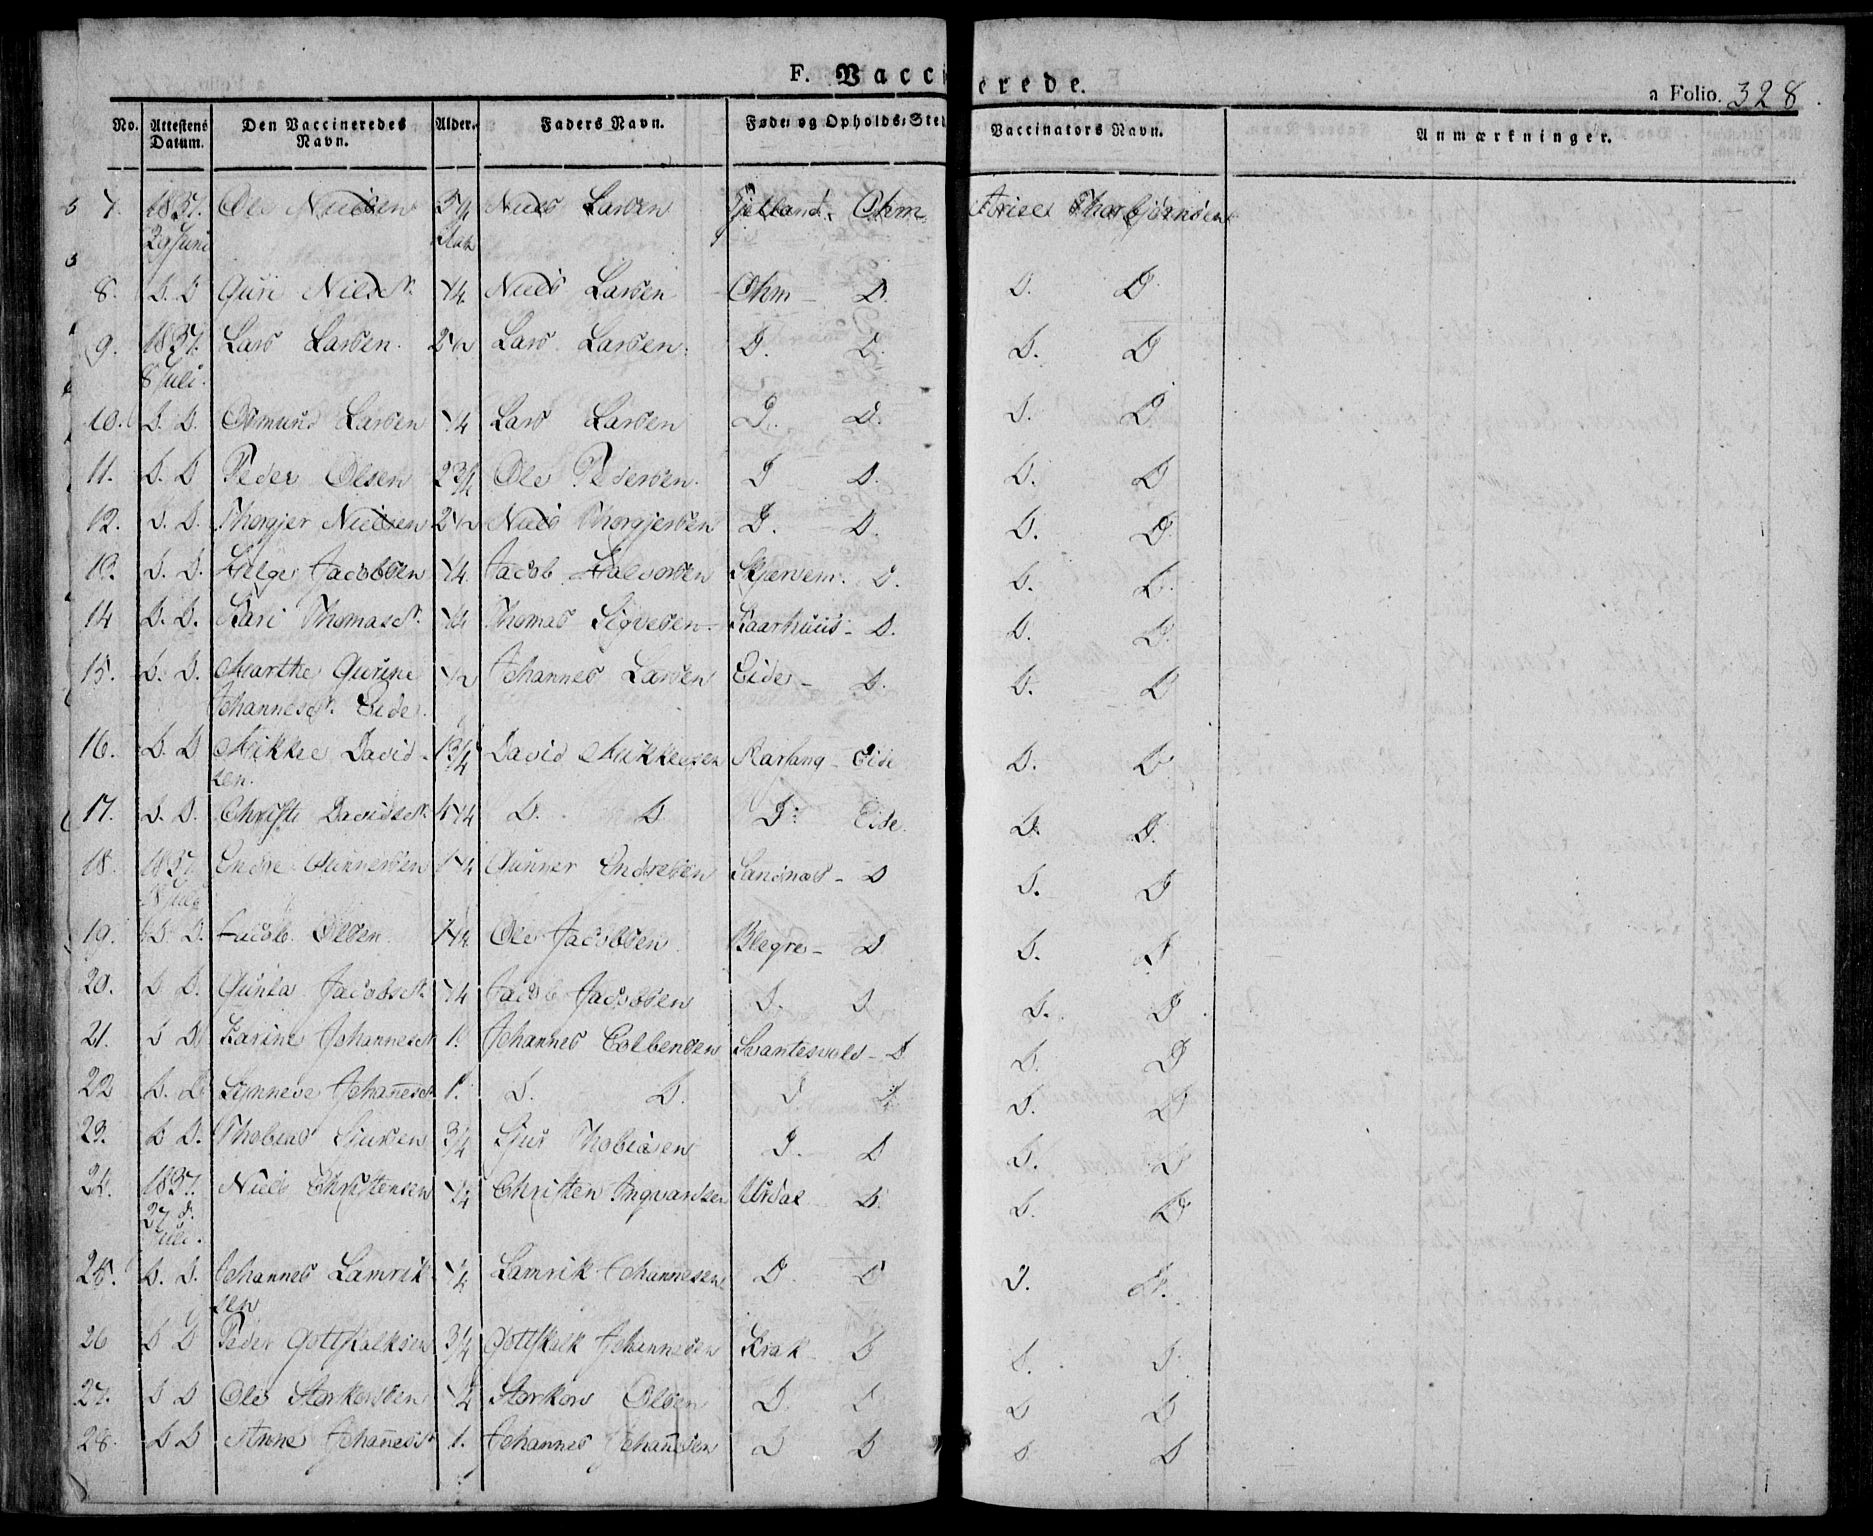 F. Vaccinerede.
a Folio. 328.
No. Attestens Datum. Den Vaccineredes Navn. Alder. Faders Navn. Føde- og Opholds-Sted Vaccinators Navn. Anmærkninger.
7. 1837. Ole Nielsen 3 Niels Larsen Gjelland - Ohm Thorbjørnsen
29 Juni
8. D. D Guri Nielsd. 1/4 Niels Larsen Ohm - D. D. D
9. 1837. Lars Larsen. 2 1/2 Lars Larsen. D. D. D. D
8 Juli.
10. D. D. Osmund Larsen 1/4 Lars Larsen D. D. D. D
11. D. D Peder Olsen 2 3/4 Ole Pedersen. D D. D. D
12. D. D. Thorgjer Nielsen 2 1/2 Niels Thorgjersen D. D. D. D
13. D. D. Helge Jacobsen 1/4 Jacob Halvorsen Skjersem. D. D. D.
14 D. D. Kari Thomasd. 1/4 Thomas Sigvesen - Kaarhuus - D. D. D.
15. D. D. Marthe Gurine 1/2 Johannes Larsen Eide - D. D. D
Johannesd. Eide.
16. D. D Mikkel David- 1 3/4 David Mikkelsen - Eide D. D.
sen.
17. D. D. Christi Davidsd. 4 1/4 D. D. D: Eide. D. D.
18. 1837. Endre Gunnersen 1 1/4 Gunner Endresen Sandnæs - D D. D
Juli
19. D D. Jacob Olsen 1/4 Ole Jacobsen Blegre - D D. D
20. D D. Gunla Jacobsd. 1/4 Jacob Jacobsen D. D D. D
21. D D Karine Johannesd. 1. Johannes Colbensen Svantesvold - D D. D
22 D. D Synneve Johanesd. 1. D. D. D D. D. D
23. D D. Thobias Sjursen 3/4 Sjur Thobiasen D. D D. D
24. 1837. Niels Christensen 1/4 Christen Ingvardsen Urdal D. D. D
27 d.
Juli.
25. D. D. Johannes Lamrik- 1/4 Lamrik Johannesen D. D D. D.
sen
26 D D Peder Gottskalksen 3/4 Gottskalk Johannesen Krak - D D. D.
27. D D Ole Storkorsen 1/4 Storkors Olsen D. D D D
28. D D Anne Johanesd. 1. Johannes Johanesen D D D D